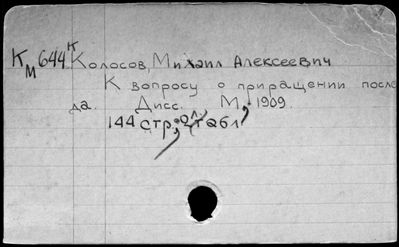 Км 644 К Колосов, Михаил Алексеевич
К вопросу о приращении после
да. Дисс. М, 1909.
144 стр., табл